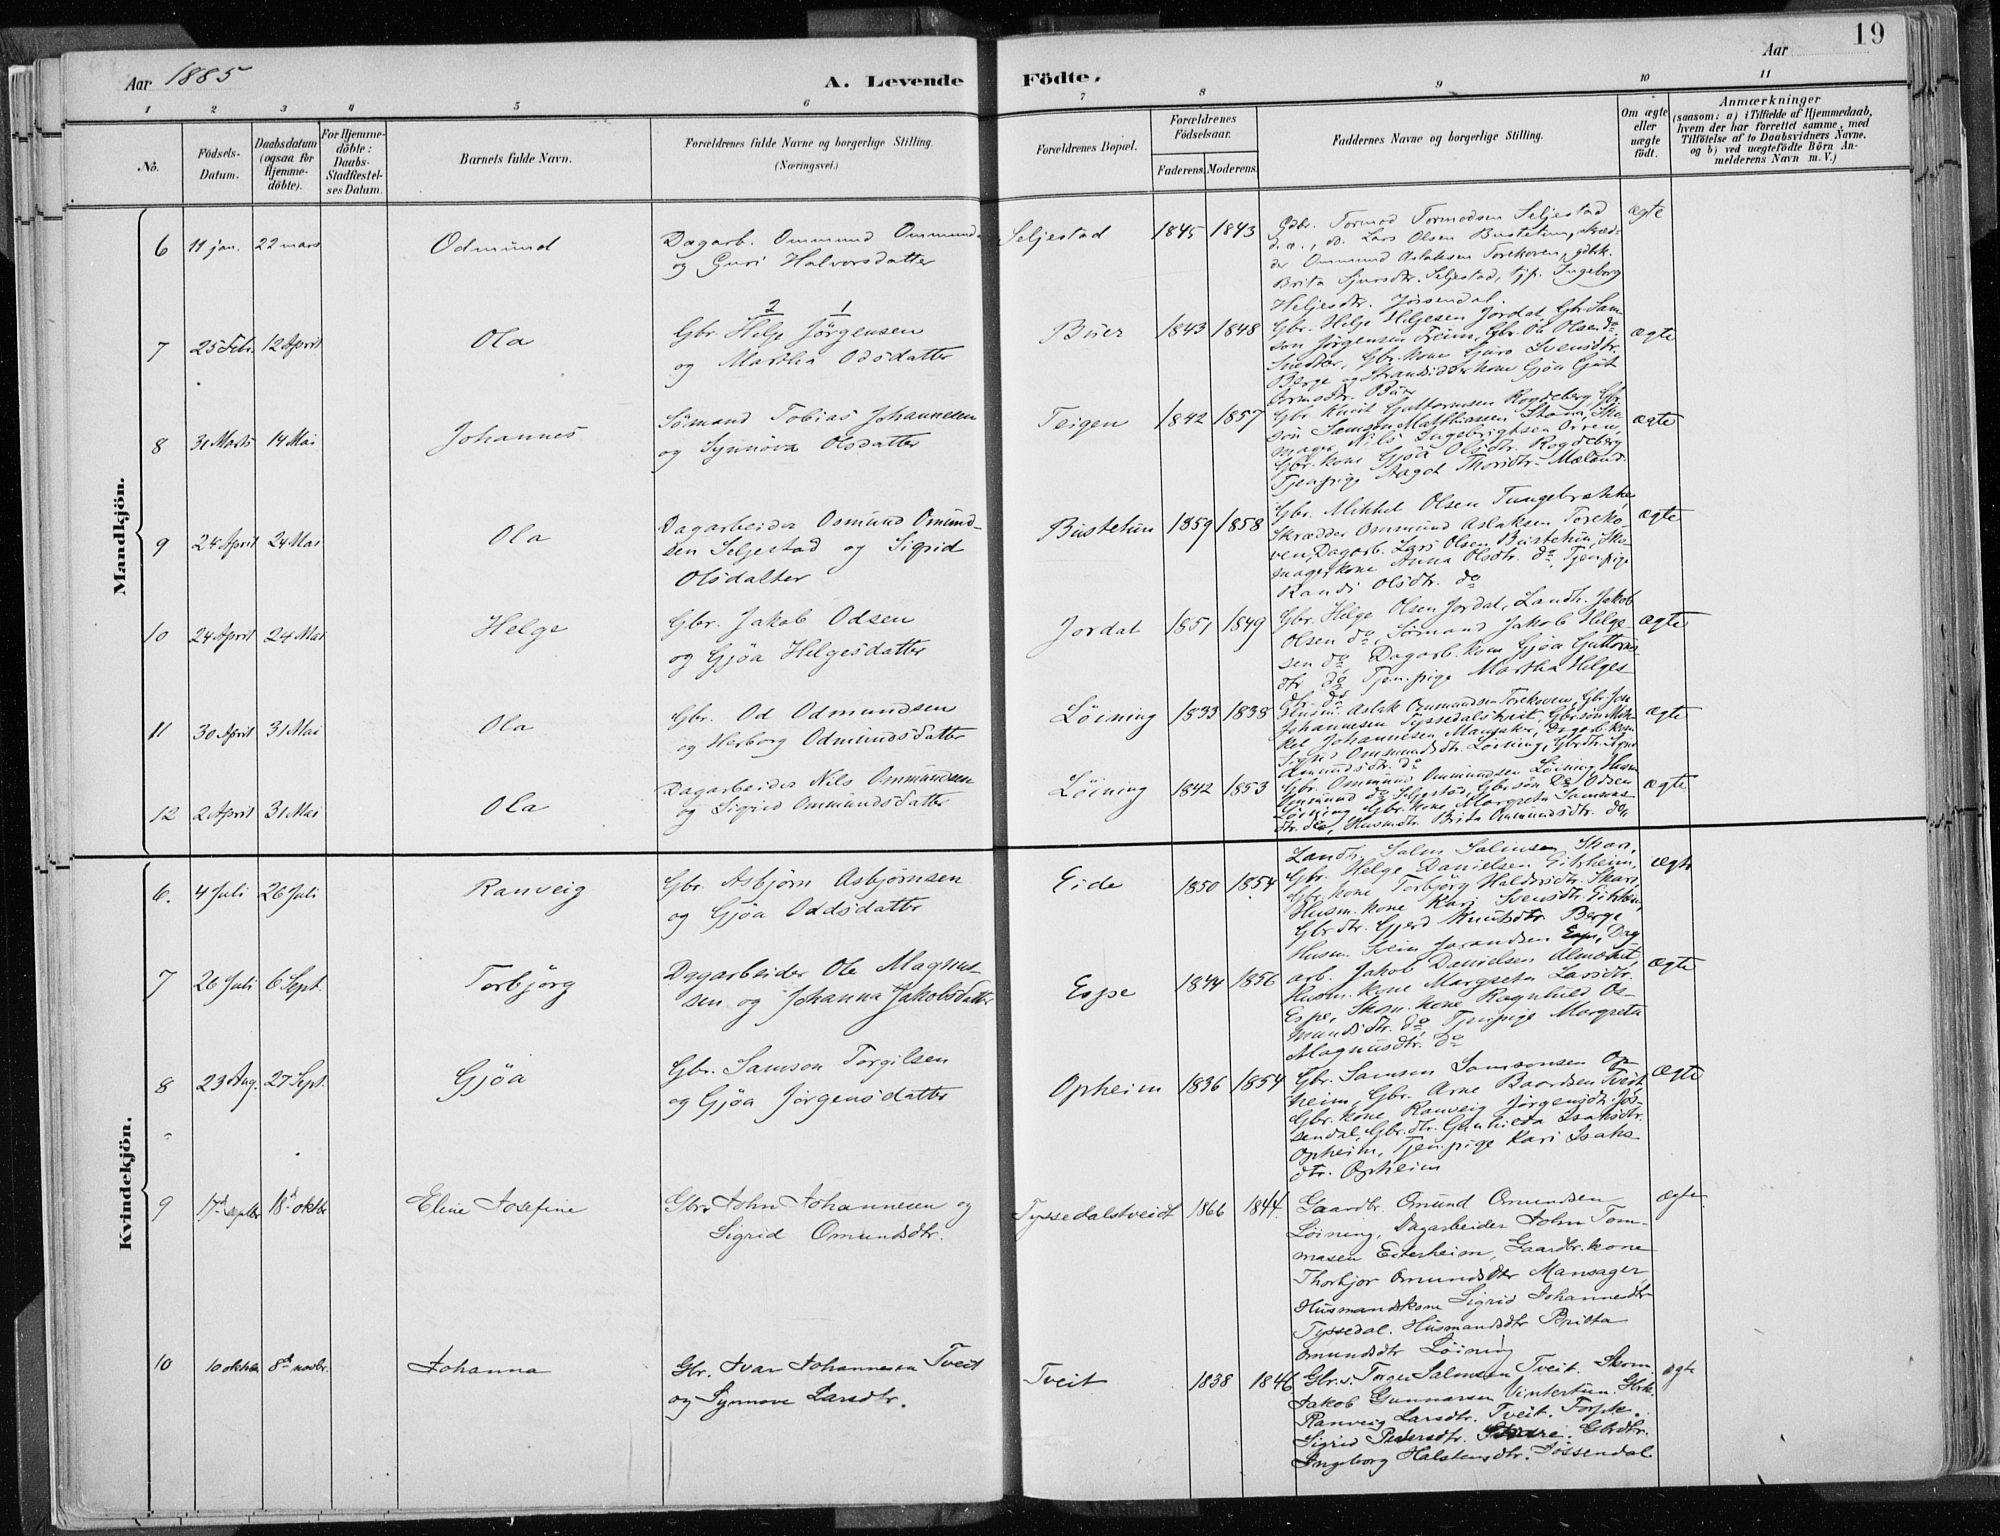 19
Aar 1885
A. Levende Födte.
Aar
1 2 3 4 5 6 7 8 9 10 11
No.
Födsels-Datum.
Daabsdatum (ogsaa for Hjemme-döbte).
For Hjemme-döbte: Daabs-Stadfæstel-ses Datum.
Barnets fulde Navn.
Forældrenes fulde Navne og borgerlige Stilling.
(Næringsvei.)
Forældrenes Bopæl.
Forældrenes Födselsaar.
Faderens. Moderens.
Faddernes Navne og borgerlige Stilling.
Om ægte eller uægte födt.
Anmærkninger
(saasom: a) i Tilfælde af Hjemmedaab,
hvem der har forrettet samme, med
Tilföielse af to Daabsvidners Navne,
og b) ved uægtefödte Börn An-
melderens Navn m. V.)
Mandkjön.
6 11 jan. 22 mars Odmund
Dagarb. Ommund Ommunds.
og Guri Halvorsdatter
Seljestad 1845 1843
Gdbr. Tormod Tormodsen Seljestad
d.æ., do. Lars Olsen Bustetun, skræd-
der Ommund Aslaksen Torekoven, gdbk.
Brita Sjursdtr. Seljestad, tjp. Ingeborg
Heljesdtr. Jøssendal.
ægte
7 25 Febr. 12 April Ola
2 1
Gbr. Helge Jørgensen
og Martha Odsdatter
Buer 1843 1848
Gbr. Helje Helgesen Jordal, Gbr. Sam-
son Jørgensen Freim, Gbr. Ole Olsen do
Snedker, Gbr. kone Guro Svensdtr.
Berge og Strandsidderkone Gjøa Gut
tormsdtr. Buer
ægte
8 31 Marts 14 Mai Johannes
Sømand Tobias Johannesen
og Synnøva Olsdatter
Teigen 1842 1857
Gbr. Knut Guttormsen Rogdeberg, Gbr.
søn Samson Matthiassen Stana, Sko-
mager Nils Ingebrigtsen Oiren,
Gbr. kone Gjøa Olsdtr. Rogdeberg
Tjenpige Aagot Thorsdtr. Mæland.
ægte
9 24 April 24 Mai Ola
Dagarbeider Osmund Omund-
sen Seljestad og Sigrid
Olsdatter
Bustetun 1859 1858
Gbr. Mikkel Olsen Tungebrække,
Skrædder Ommund Aslaksen Toreko-
ven, Dagarb. Lars Olsen Bustetun, Sko-
magerkone Anna Olsdtr. do, Tjenpige
Randi Olsdtr. do
ægte
10 24 April 24 Mai Helge
Gbr. Jakob Odsen
og Gjøa Helgesdatter
Jordal 1851 1849
Gbr. Helge Olsen Jordal, Landh. Jakob
Olsen do, Sømand Jakob Helge-
sen do, Dagarb. kone Gjøa Guttorms-
dtr. do, Tjen.pige Martha Helges
dtr. do
ægte
11 30 April 31 Mai Ola
Gbr. Od Odmundsen
og Herborg Odmundsdatter
Løining 1833 1838
Husm. Aslak Ommundsen Torekoven, Gbr. Jon
Johannesen Tyssedalstveit, Gbr.søn Mik-
kel Johannesen Mansaker, Dagarb. kone
Sigrid Ommundsdtr. Løining, Gbr.dtr.
Omundsdtr. do
ægte
12 2 April 31 Mai Ola
Dagarbeider Nils Ommundsen
og Sigrid Ommundsdatter
Løining 1842 1853
Gbr. Ommund Ommundsen Løining, Husm
Ommund do Seljestad, Gbr.søn Od Odsen
Løining, Gbr. kone Margreta Samsons-
dtr. do, Husm.dtr. Brita Ommundsdtr. do
ægte
Kvindekjön.
6. 4 Juli 26 Juli Ranveig
Gbr. Asbjørn Asbjørnsen
og Gjøa Oddsdatter
Eide 1850 1854
Landh. Salm. Salmsen Skare,
Gbr. Helge Danielsen Eitrheim,
Gbr. kone Torbjørg Haldorsdtr. Skare,
Husm. kone Kari Svensdtr. Eitrheim,
Gbr.dtr. Gjerd Knutsdtr. Berge
ægte
7 26 Juli 6 Sept. Torbjörg
Dagarbeider Ole Magnus-
sen og Johanna Jakobsdatter
Espe 1844 1856
Husm. Svein Jorandsen Espe, Dag
arb. Jakob Danielsen Almotut,
Husm. kone Margreta Larsdtr.
Espe, Skom. kone Ragnhild Os-
mundsdtr. do, Tjenpige Margreta
Magnusdtr. do
ægte
8 23 Aug. 27 Sept. Gjøa
Gbr. Samson Torgilsen
og Gjøa Jørgensdatter
Opheim 1836 1854
Gbr. Samson Samsonsen Op-
heim, Gbr. Arne Baardsen Tveit,
Gbr. kone Ranveig Jørgensdtr. Jøs-
sendal, Gbr.dtr. Gunhilda Isaksdtr.
Opheim, Tjen.pige Kari Isaks-
dtr. Opheim
ægte
9 17de septbr 18de oktbr Eline Josefine
Gbr. John Johannesen og
Sigrid Omundsdtr.
Tyssedalstveidt 1866 1844.
Gaardbr. Omund Omundsen
Løining, Dagarbeider John Tom-
masen Eiterheim, Gaardbr. kone
Thorbjør Omundsdtr Mansager,
Husmandskone Sigrid Johannesdtr
Tyssedal. Husmandsdtr Britta
Omundsdtr Løining
ægte.
10 10 oktober 8de novbr. Johanna
Gbr. Ivar Johannesen Tveit
og Synnøve Larsdtr.
Tveit 1838 1846
Gbr.s. Torger Salmsen Tveit. Skom.
Jakob Gunnarsen Vintertun. Gbrk.
Ranveig Larsdtr. Tveit. Tjpk.
Sigrid Pedersdtr. Gbrdtr.
Ingeborg Halstensdtr. Jøssendal.
ægte